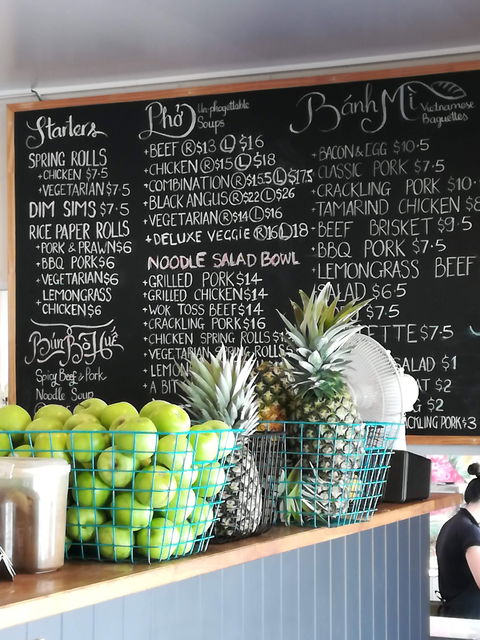 Starters
SPRING ROLLS
+CHICKEN $7·5
+VEGETARIAN $7·5
DIM SIMS $7·5
RICE PAPER ROLLS
+PORK & PRAWN $6
+BBQ PORK $6
+VEGETARIAN $6
LEMONGRASS
+CHICKEN $6
Bún Bò Huế
Spicy Beef & Pork
Noodle Soup
Phở Un-phogettable
Soups
+BEEF Ⓡ$13 Ⓛ$16
+CHICKEN Ⓡ$15 Ⓛ$18
+COMBINATION Ⓡ$15.5 Ⓛ$17.5
+BLACK ANGUS Ⓡ$22 Ⓛ$26
+VEGETARIAN Ⓡ$14 Ⓛ$16
+DELUXE VEGGIE Ⓡ16 Ⓛ18
NOODLE SALAD BOWL
+GRILLED PORK $14
+GRILLED CHICKEN $14
+WOK TOSS BEEF $14
+CRACKLING PORK $16
+CHICKEN SPRING ROLLS
+VEGETARIAN SPRING ROLLS
+A BIT
Bánh Mì Vietnamese
Baguettes
+BACON & EGG $10·5
CLASSIC PORK $7·5
+CRACKLING PORK $10·
+TAMARIND CHICKEN $8
+BEEF BRISKET $9·5
+BBQ PORK $7·5
+LEMONGRASS BEEF
SALAD $6·5
$7·5
$7·5
SALAD $1
$2
$2
PORK $3